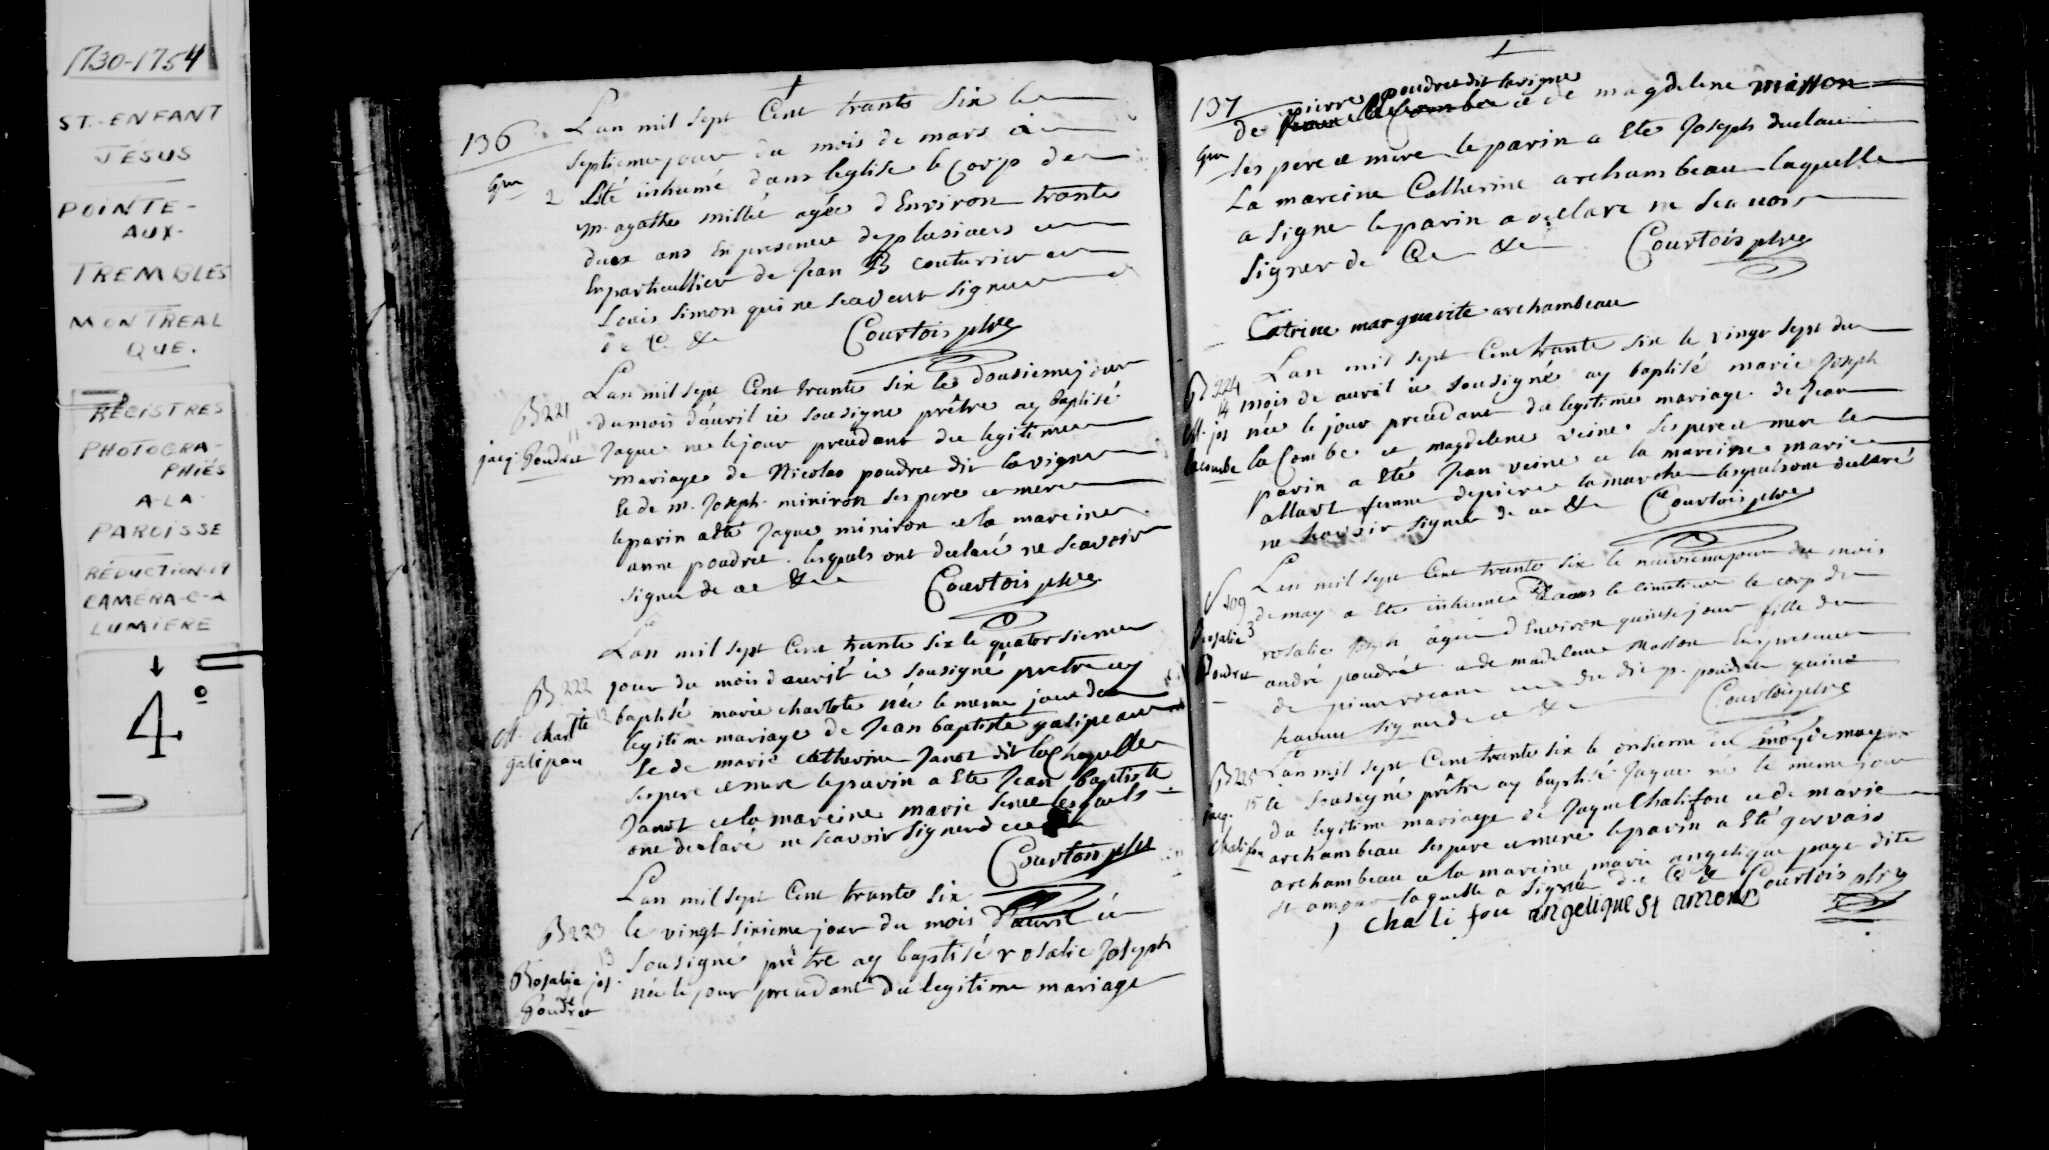 1730-1754
ST. ENFANT
JESUS
POINTE-
AUX-
TREMBLES
MONTREAL
QUE.
REGISTRES
PHOTOGRA-
PHIÉS
A-LA-
PAROISSE
RÉDUCTION-19
CAMÉRA-C-2
LUMIERE
4°
136
Lan mil sept Cent trante six le
septieme jour du mois de mars a
2 Eté inhumé dans leglise le Corp de
m. agathe millié agée d Environ trante
deux ans En presence de plusieurs et
En particullier de Jean B couturier et
Louis Simon qui ne scavent signer
de Ce &c
Courtois ptre
B 221
11
jacq. Poudret
Lan mil sept Cent trante six le dousieme jour
du mois d'auril ie sousigne prêtre ay baptisé
Jaque ne le jour precedant du legitime
mariage de Nicolas poudret dit lavigne
Et de m. Joseph miniron ses pere et mere
le parin a été Jaque miniron et la mareine
anne poudret lesquels ont declaré ne scavoir
signer de ce &c
Courtois ptre
B 222
12
M. charltte
galipau
Lan mil sept Cent trante six le quatorsieme
jour du mois d auril ie sousigné pretre ay
baptisé marie charlote née le meme jour du
legitime mariage de Jean baptiste galipeau
Et de marie catherine Janot dit la Chapelle
ses pere et mere le parin a Ete Jean baptiste
Janot et la mareine marie lesquels
ont declaré ne scavoir signer de ce
Courtois ptre
B 223
13
Rosalie jos.
Poudret
Lan mil sept Cent trante six
le vingt sixieme jour du mois d'auril ie
sousigné prêtre ay baptisé rosalie Joseph
née le jour precedant du legitime mariage
137
pierre poudret dit lavigne
de et de magdelene masson
ses pere et mere le parin a Ete Joseph duclau
La mareine Catherine archambeau laquelle
a signe le parin a declare ne scavoir
signer de Ce &c
Courtois ptre
Catrine marguerite archambeau
B 224
14
M. jos
lacombe
Lan mil sept Cent trante six le vingt sept du
mois de auril ie sousigné ay baptisé marie Joseph
née le jour precedant du legitime mariage de Jean
la Combe et magdelene veine ses pere et mere le
parin a Eté Jean veine et la mareine marie
allart femme de pierre lamarche lesquels ont declaré
ne scavoir signer de ce &c
Courtois ptre
S 109
3
Rosalie
Poudret
Lan mil sept Cent trante six le neuvieme jour du mois
de may a Ete inhumé dans le cimetiere le corp de
rosalie Joseph âgée d Environ quinse jour fille de
andré poudret et de madelene Masson En presence
de pierre et du dit p. poudret qui ne
scavent signer de ce &c
Courtois ptre
B 225
15
jacq.
chalifou
Lan mil sept Cent trante six le onsieme de may
ie sousigné prêtre ay baptisé Jaque né le meme jour
du legitime mariage de Jaque Chalifou et de marie
archambeau ses pere et mere le parin a Eté gervais
archambeau et la mareine marie angelique page dite
st amour laquelle a signé de Ce &c Courtois ptre
J chalifou angelique St amour